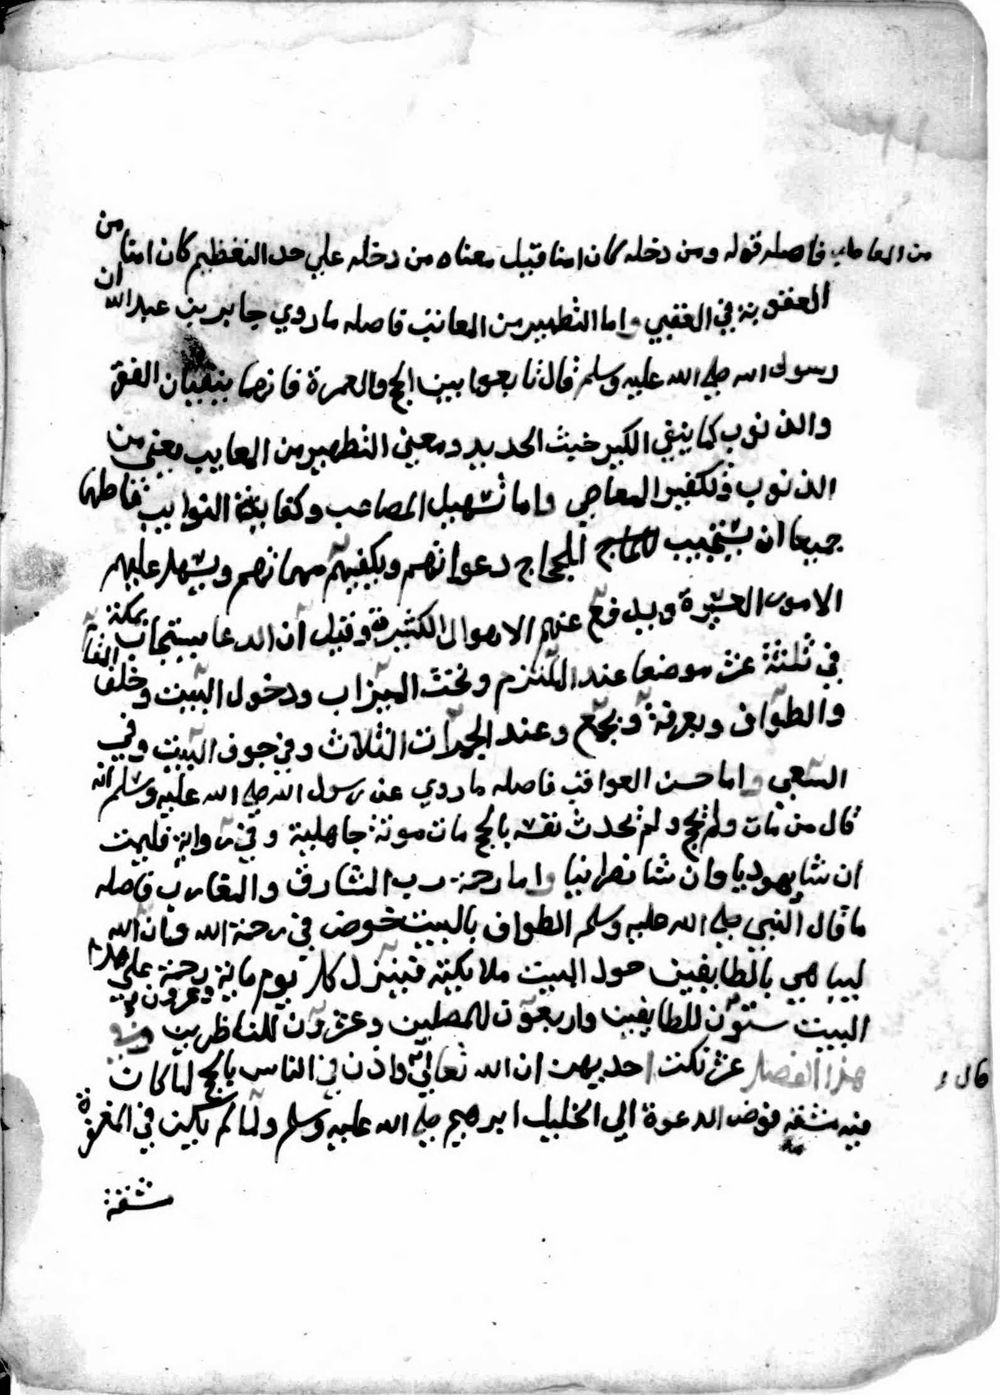 من المعاطب فاصله قوله ومن دخله كان امنا قيل معناه من دخله علي حد التعظيم كان امنا من
العقوبة في العقبي واما التطهير من المعائب فاصله ما روي جابر بن عبد الله ان
رسول الله صلي الله عليه وسلم قال تابعوا بين الحج والعمرة فانهما ينفيان الفقر
والذنوب كما ينفي الكير خبث الحديد ومعني التطهير من المعايب يعني من
الذنوب وتكفير المعاصي واما تسهيل المصاعب وكفاية النوايب فاصلها
جميعا ان يستجيب للحجاج دعواتهم ويكفيهم مهماتهم ويسهل عليهم
الامور العسيرة ويدفع عنهم الاهوال الكثيرة وقيل ان الدعا يستجاب بمكة
في ثلثة عشر موضعا عند الملتزم وتحت الميزاب ودخول البيت وخلف المقام
والطواف وبعرفة وبجمع وعند الجمرات الثلاث وفي جوف البيت وفي
السعي واما حسن العواقب فاصله ما روي عن رسول الله صلي الله عليه وسلم انه
قال من مات ولم يحج ولم يحدث نفسه بالحج مات موتة جاهلية وفي رواية فليمت
ان شا يهوديا وان شا نصرانيا واما رحمة رب المشارق والمغارب فاصله
ما قال النبي صلي الله عليه وسلم الطواف بالبيت خوض في رحمة الله وان الله
ليباهي بالطايفين حول البيت ملايكته فينزل كل يوم ماية رحمة وعشرون علي هذا
البيت ستون للطايفين واربعون للمصلين وعشرون للناظرين وفي
هذا الفصل عشر نكت احديهن ان الله تعالي واذن في الناس بالحج لما كان
قال
فيه مشقة فوض الدعوة الي الخليل ابرهيم صلي الله عليه وسلم ولما لم يكن في المغفرة
مشقة